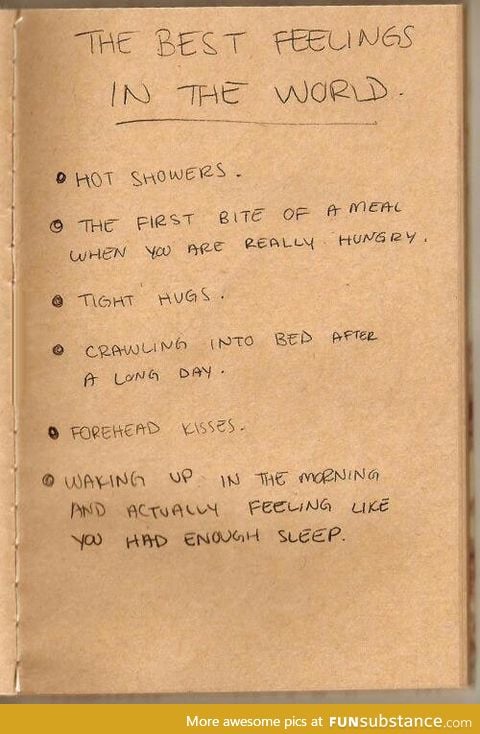 THE BEST FEELINGS
IN THE WORLD.
HOT SHOWERS.
THE FIRST BITE OF A MEAL
WHEN YOU ARE REALLY HUNGRY.
TIGHT HUGS.
CRAWLING INTO BED AFTER
A LONG DAY.
FOREHEAD KISSES.
WAKING UP IN THE MORNING
AND ACTUALLY FEELING LIKE
YOU HAD ENOUGH SLEEP.
More awesome pics at FUNsubstance.com